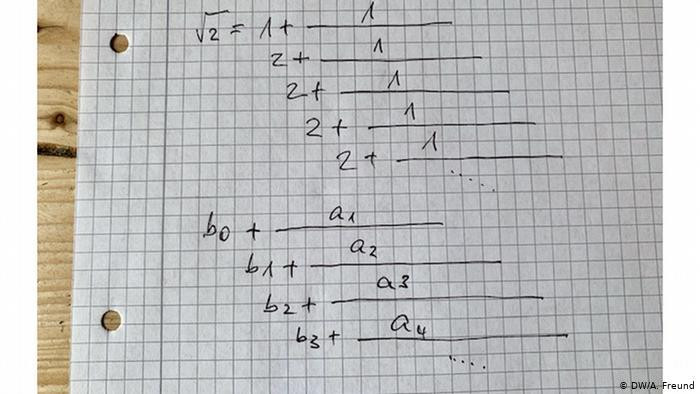 √2 = 1 + 1
2 + 1
2 + 1
2 + 1
2 + 1
.....
b₀ + a₁
b₁ + a₂
b₂ + a₃
b₃ + a₄
....
© DW/A. Freund